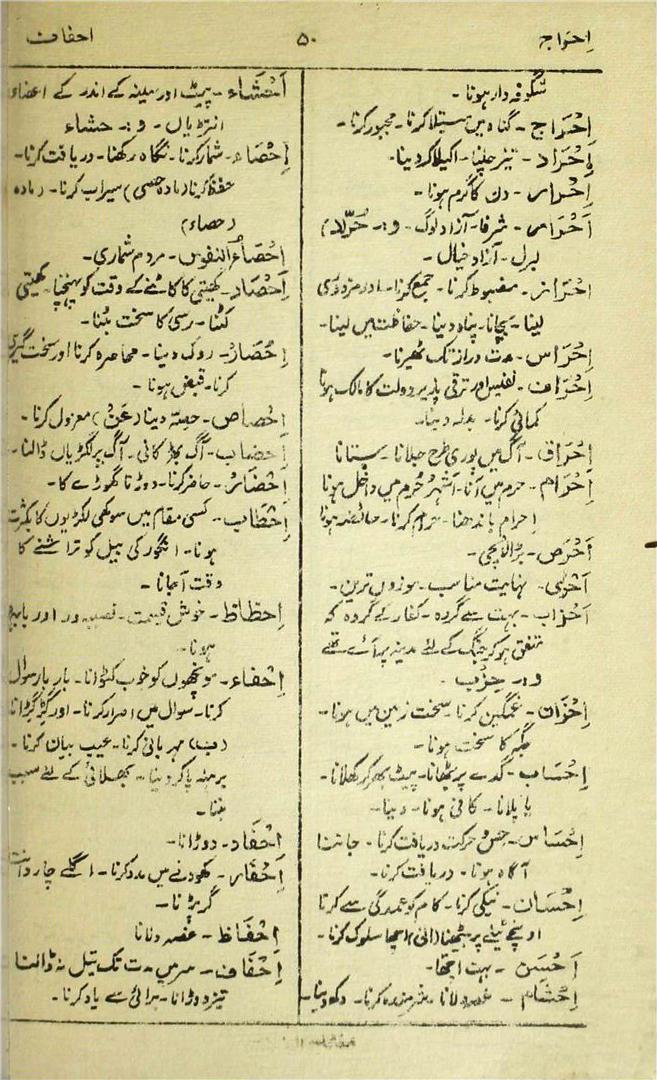 اِحراج
۵۰
احفاف
شگوفہ دار ہونا ۔
اِحْرَاج ۔ گناہ میں مبتلا کرنا ۔ مجبور کرنا ۔
اِحْرَاد ۔ تیز چلنا ۔ اکیلا کر دینا ۔
اِحْرَار ۔ دن کا گرم ہونا ۔
اَحْرَار ۔ شرفا ۔ آزاد لوگ ۔ و :۔ حُرّ
لبرل ۔ آزاد خیال ۔
اِحْرَاز ۔ مضبوط کرنا ۔ جمع کرنا ۔ اور مزدوری
لینا ۔ بچانا ۔ پناہ دینا ۔ حفاظت میں لینا ۔
اِحْرَاس ۔ مدت دراز تک ٹھیرنا ۔
اِحْرَاف ۔ نفیس اور ترقی پذیر دولت کا مالک ہونا
کمائی کرنا ۔ بدلہ دینا ۔
اِحْرَاق ۔ آگ میں پوری طرح جلانا ۔ ستانا
اِحْرَام ۔ حرم میں آنا ۔ اَشْہُرِ حُرم میں داخل ہونا
احرام باندھنا ۔ حرام کرنا ۔ حائضہ ہونا
اَحْرَص ۔ بڑا لالچی ۔
اَحْرٰی ۔ نہایت مناسب ۔ موزوں ترین ۔
اَحْزَاب ۔ بہت سے گروہ ۔ کفار کے گروہ کہ
متفق ہو کر جنگ کے لئے مدینہ پر آئے تھے
و :۔ حِزْب ۔
اِحْزَان ۔ غمگین کرنا ۔ سخت زمین میں ہونا ۔
جگہ کا سخت ہونا ۔
اِحْسَاب ۔ گدے پر بٹھانا ۔ پیٹ بھر کر کھلانا ۔
یا پلانا ۔ کافی ہونا ۔ دینا ۔
اِحْسَاس ۔ حس و حرکت دریافت کرنا ۔ جاننا
آگاہ ہونا ۔ دریافت کرنا ۔
اِحْسَان ۔ نیکی کرنا ۔ کام کو عمدگی سے کرنا
اونچے ٹیلے پر بیٹھنا (الیٰ) اچھا سلوک کرنا ۔
اَحْسَن ۔ بہت اچھا ۔
اِحْشَام ۔ غصہ دلانا ۔ شرمندہ کرنا ۔ دکھ دینا ۔
اَحْشَاء ۔ پیٹ اور سینہ کے اندر کے اعضاء
انتڑیاں ۔ و :۔ حشاء
اِحْصَاء ۔ شمار کرنا ۔ نگاہ رکھنا ۔ دریافت کرنا ۔
حفظ کرنا (مادہ حصی) سیراب کرنا ۔ (مادہ
(حصاء)
اِحْصَاءُ النفوس ۔ مردم شماری ۔
اِحْصَاد ۔ کھیتی کا کاٹنے کے وقت کو پہنچنا ۔ کھیتی
کٹنا ۔ رسی کا سخت بٹنا ۔
اِحْصَار ۔ روک دینا ۔ محاصرہ کرنا اور سخت گیری
کرنا ۔ قبض ہونا ۔
اِحْصَاص ۔ حصّہ دینا (عَنْ) معزول کرنا ۔
اِحْضَاب ۔ آگ بھڑکانی ۔ آگ پر لکڑیاں ڈالنا ۔
اِحْضَار ۔ حاضر کرنا ۔ دوڑنا گھوڑے کا ۔
اِحْطَاب ۔ کسی مقام میں سوکھی لکڑیوں کا بکثرت
ہونا ۔ انگور کی بیل کو تراشنے کا
وقت آجانا ۔
اِحْظَاظ ۔ خوش قسمت ۔ نصیبہ ور اور
ہونا ۔
اِحْفَاء ۔ مونچھوں کو خوب کٹوانا ۔ بار بار سوال
کرنا ۔ سوال میں اصرار کرنا ۔ اور گڑگڑانا
مہربانی کرنا ۔ عیب بیان کرنا ۔
برہنہ پا کر دینا ۔ بھلائی کے لئے سبب
بننا ۔
اِحْفَاد ۔ دوڑانا ۔
اِحْفَار ۔ کھودنے میں مدد کرنا ۔ اگلے چار دانت
گر پڑنا ۔
اِحْفَاظ ۔ غصہ دلانا
اِحْفَاف ۔ سر میں مدت تک تیل نہ ڈالنا
تیز دوڑانا ۔ برائی سے یاد کرنا ۔